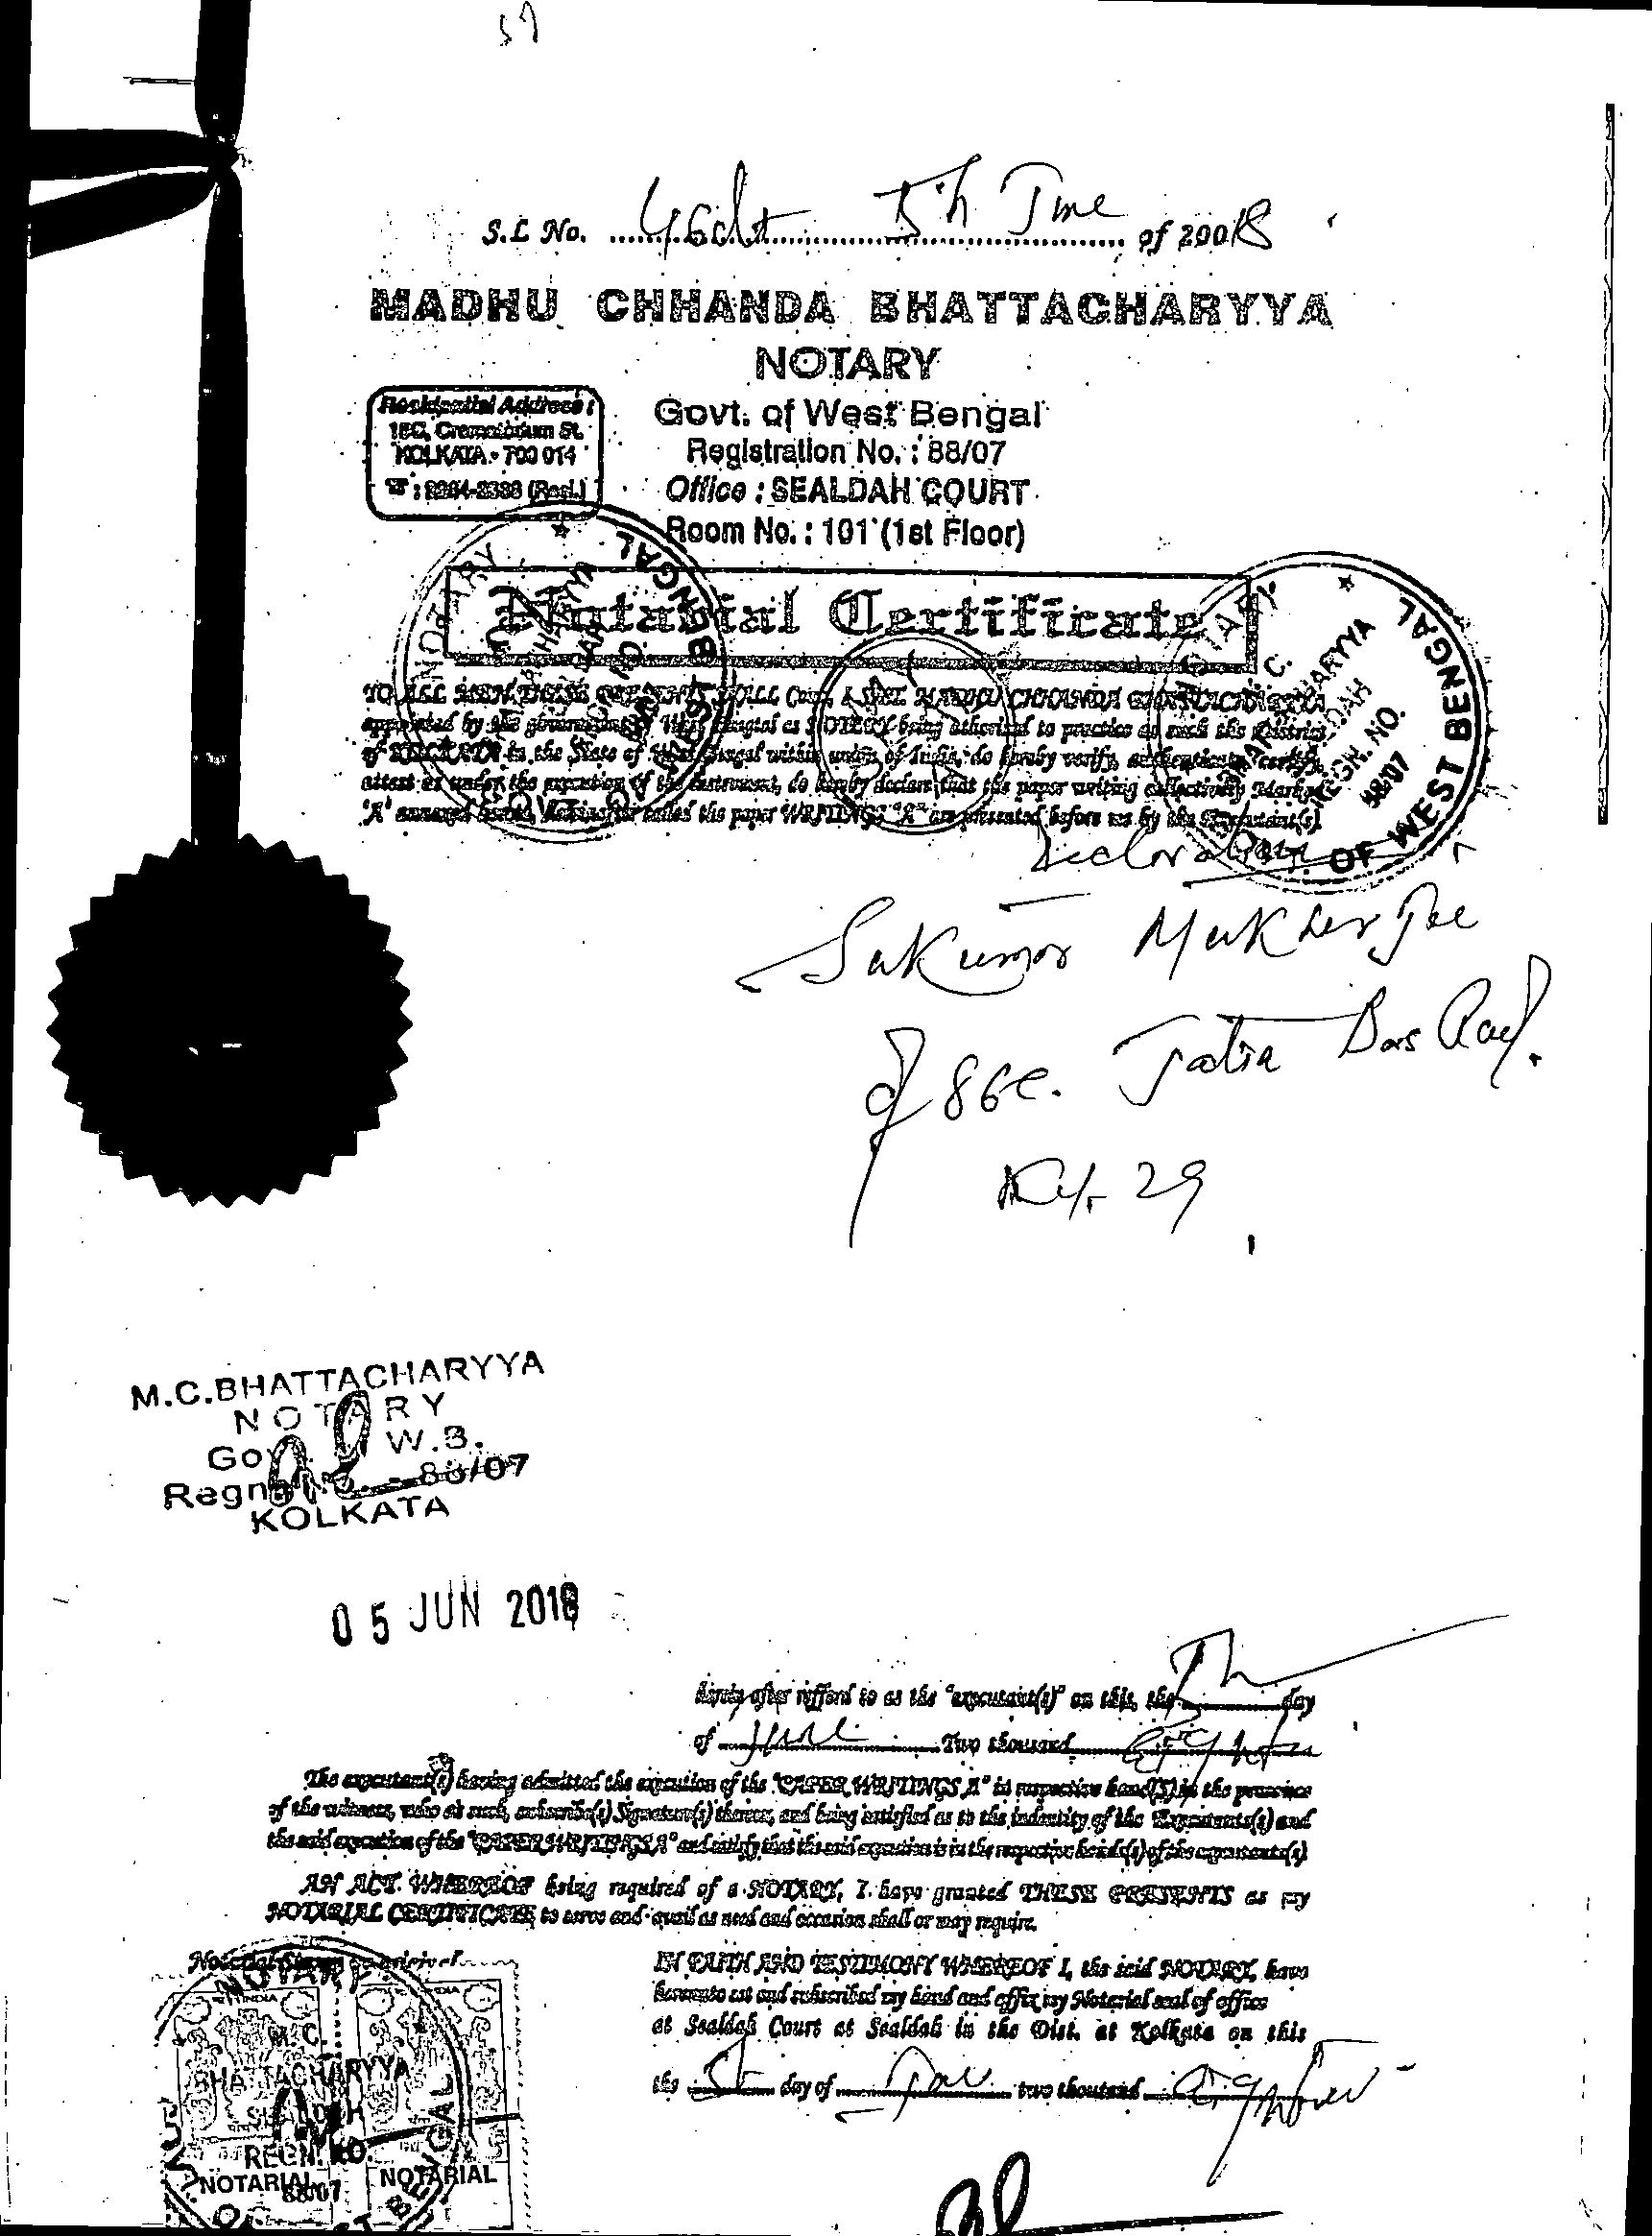 S.L No. 5th June of 20018
MADHU CHHANDA BHATTACHARYYA
NOTARY
Govt. of West Bengal
Registration No. : 88/07
Office : SEALDAH COURT
Room No. : 101 (1st Floor)
Residential Address :
18C, Crematorium St.
KOLKATA - 700 014
Notarial Certificate
TO ALL MEN THESE PRESENTS SHALL Come, I MADHU CHHANDA BHATTACHARYYA
appointed by the government of West Bengal as NOTARY being athorised to practice as such the District
of in the State of West Bengal within union of India, do hereby verify, authenticate, certify,
attest as under the execution of the instrument, do hereby declare that the paper writing collectively Marked
'A' annexed hereto, hereinafter called the paper WRITINGS "A" are presented before me by the Executant(s)
Declaration
Sukumar Mukherjee
of 86C. Jatin Das Road.
Kol- 29
NOTARY
BHATTACHARYYA
REGN. NO.
88/07
OF WEST BENGAL
M.C.BHATTACHARYYA
NOTARY
Govt. W.B.
Regn. No. - 88/07
KOLKATA
05 JUN 2018
after refferd to as the "executant(s)" on this, the 5th day
of June Two thousand Eighteen
The executant(s) having admitted the execution of the "PAPER WRITINGS A" in respective hand(S) in the presence
of the witness, who as such, subscribe(s) Signature(s) thereon, and being satisfied as to the indentity of the Executants(s) and
the said execution of the "PAPER WRITINGS A" and satisfy that the said execution is in the respective hand(s) of the executants(s)
AN ACT WHEREOF being required of a NOTARY, I have granted THESE PRESENTS as my
NOTARIAL CERTIFICATE to serve and avail as need and occasion shall or may require.
IN FAITH AND TESTIMONY WHEREOF I, the said NOTARY, have
hereunto set and subscribed my hand and affix my Notarial seal of office
at Sealdah Court at Sealdah in the Dist. at Kolkata on this
the 5th day of June two thousand Eighteen
Notarial
NOTARY
M.C.
BHATTACHARYYA
SEALDAH
REGN. NO.
88/07
NOTARIAL
NOTARIAL